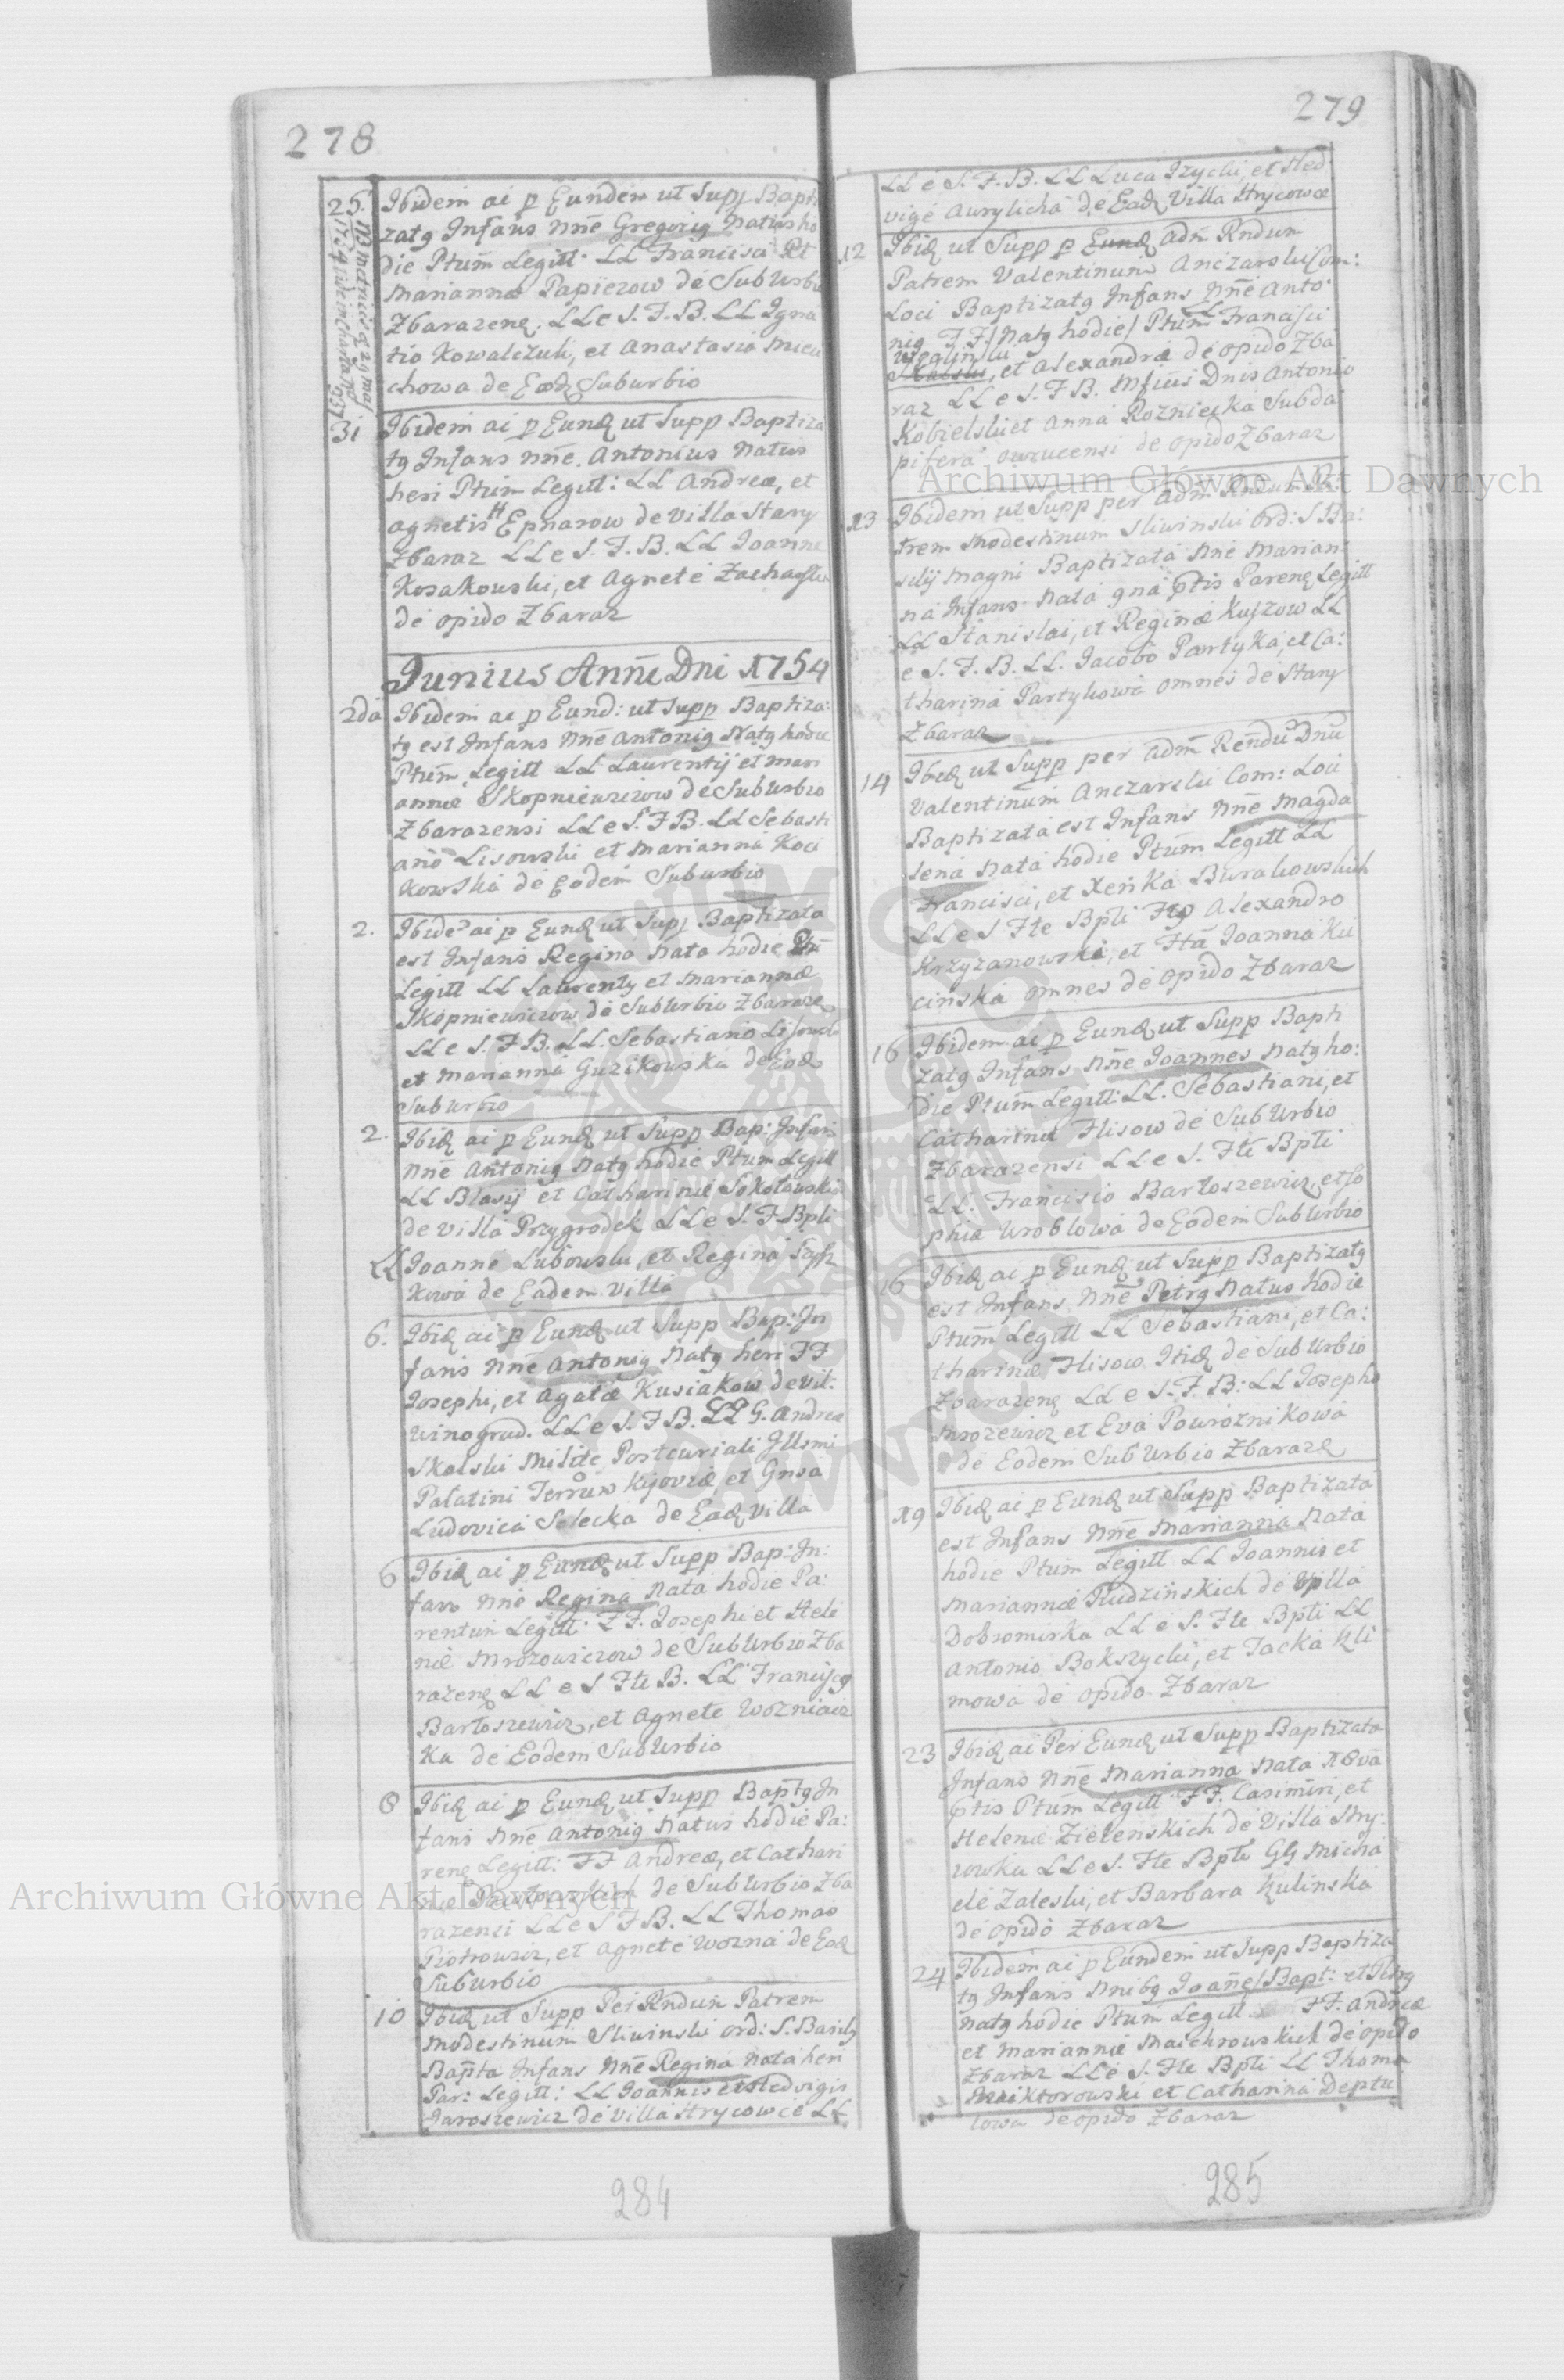 278
25. Ibidem ai p Eundem ut Supp Bapti
zatg Infans Nne Gregorig Natus ho
die Ptum Legitt. LL Francisci Et
Mariannæ Papierow de SubUrbio
Zbarazenq. LL e S. F. B. LL Igna
tio Kowalczuk, et Anastasia
chowa de Eodq Suburbio
31 Ibidem ai p Eunq ut Supp Baptiza
tg Infans Nne. Antonius Natus
heri Ptum Legitt: LL Andreæ, et
Agnetis Epnarow de Villa Stary
Zbaraz LL e S. F. B. LL Joanne
Kosakowski, et Agnete
de opido Zbaraz
Junius Anni Dni 1754
2da Ibidem ai p Eund: ut Supp Baptiza:
tg est Infans Nne Antonig Natg hodie
Ptum Legitt LL Laurentij et Mari
annæ Skopniewiczow de SubUrbio
Zbarazensi LL e S. F B. LL Sebasti
ano Lisowski et Marianna Koci
kowska de Eodem Suburbio
2. Ibide ai p Eunq ut Supp Baptizata
est Infans Regina Nata hodie Ptu
Legitt LL Laurenty et Mariannæ
Skopniewiczow de SubUrbio Zbaraze
LL e S. F B. LL. Sebastiano Lisowski
et Marianna Guzikowska de Eoq
SubUrbio
2. Ibiq ai p Eunq ut Supp Bap: Infans
Nne Antonig Natg hodie Ptum Legitt
LL Blasij et Catharinæ Sokołowskich
de Villa Przygrodek LL e S. F Bpti
LL Joanne Lubowski, et Regina
kowa de Eadem Villa
6. Ibiq ai p Eunq ut Supp Bap: In
fans Nne Antonig Natg heri FF
Josephi, et Agatæ Kusiakow de Vil:
Winograd. LL e S. F B. LL G. Andreæ
Skalski Milite Postcuriali Illsmi
Palatini Terrum Kijoviæ, et Gnsa
Ludovica Selecka de Eaq Villa
6 Ibiq ai p Eunq ut Supp Bap: In:
fans Nne Regina Nata hodie Pa:
rentum Legitt: FF. Josephi et Hele
næ Mrozowiczow de SubUrbio Zba
razenq LL e S Fte B. LL Franciscg
Bartoszewicz, et Agnete Wozniacz
ka de Eodem SubUrbio
8 Ibiq ai p Eunq ut Supp Baptg In
fans Nne Antonig Natus hodie Pa:
renq Legitt: FF Andreæ, et Cathari
næ Pawłowskich de SubUrbio Zba
razensi LL e S F B. LL Thomas
Piotrowicz, et Agnete Wozna de Eaq
SubUrbio
10 Ibiq ut Supp Per Rndum Patrem
Modestinum Sliwinski Ord: S. Basily
Bapta Infans Nne Regina Nata heri
Par: Legitt: LL Joannis et Hedvigis
Jaroszewicz de Villa Hrycowce LL
284
279
LL e S. F. B. LL Luca Izycki, et Hed
vige Aurylicha de Eaq Villa Hrycowce
12 Ibiq ut Supp p Eunq Adm Rndum
Patrem Valentinum Anczarski Com:
Loci Baptizatg Infans Nne Anto
nig FF Natg hodie Ptum Francisci
et Alexandræ de opido Zba
raz LL e S. F B. Mficis Dnis Antonio
Kobielski et Anna Rozniecka Subda
pifera Owrucensi de opido Zbaraz
13 Ibidem ut Supp per Adm Rndum Pa:
trem Modestinum Sliwinski Ord: S Ba:
silij Magni Baptizata Nne Marian
na Infans Nata 9na ptis Parenq Legitt
LL Stanislai, et Reginæ Kuszow LL
e S. F. B. LL. Jacobo Partyka, et Ca:
tharina Partykowa omnes de Stary
Zbaraz
14 Ibiq ut Supp per Adm Rendu Dnu
Valentinum Anczarski Com: Loci
Baptizata est Infans Nne Magda
lena Nata hodie Ptum Legitt LL
Francisci, et Xenka Burakowskich
LL e S Fte Bpti Ftg Alexandro
Krzyzanowski, et Fta Joanna Ku
cinska omnes de opido Zbaraz
16 Ibidem ai p Eunq ut Supp Bapti
zatg Infans Nne Joannes Natg ho:
die Ptum Legitt: LL. Sebastiani, et
Catharinæ Flisow de SubUrbio
Zbarazensi LL e S. Fte Bpti
LL. Francisio Bartoszewicz, et So
phia Wroblowa de Eodem SubUrbio
16 Ibiq ai p Eunq ut Supp Baptizatg
est Infans Nne Petrg Natus hodie
Ptum Legitt LL Sebastiani, et Ca:
tharinæ Flisow Itiq de SubUrbio
Zbarazenq LL e S. F. B: LL Josepho
Mrozewicz et Eva Powroznikowa
de Eodem SubUrbio Zbaraze
19 Ibiq ai p Eunq ut Supp Baptizata
est Infans Nne Marianna Nata
hodie Ptum Legitt LL Joannis et
Mariannæ Rudzinskich de Villa
Dobromirka LL e S. Fte Bpti LL
Antonio Bokszycki, et Jacka Kli
mowa de opido Zbaraz
23 Ibiq ai Per Eunq ut Supp Baptizata
Infans Nne Marianna Nata
ptis Ptum Legitt FF. Casimiri, et
Helenæ Zielenskich de Villa
LL e S. Fte Bpte GG Micha
ele Zaleski, et Barbara Kulinska
de opido Zbaraz
24 Ibidem ai p Eundem ut Supp Baptiza
tg Infans Nnibg Joanes Bapt: et Petrg
Natg hodie Ptum Legitt FF. Andreæ
et Mariannæ Maichrowskich de opido
Zbaraz LL e S. Fte Bpti LL Thoma
Wiktorowski et Catharina Deptu
lowa de opido Zbaraz
285
Archiwum Główne Akt Dawnych
Archiwum Główne Akt Dawnych